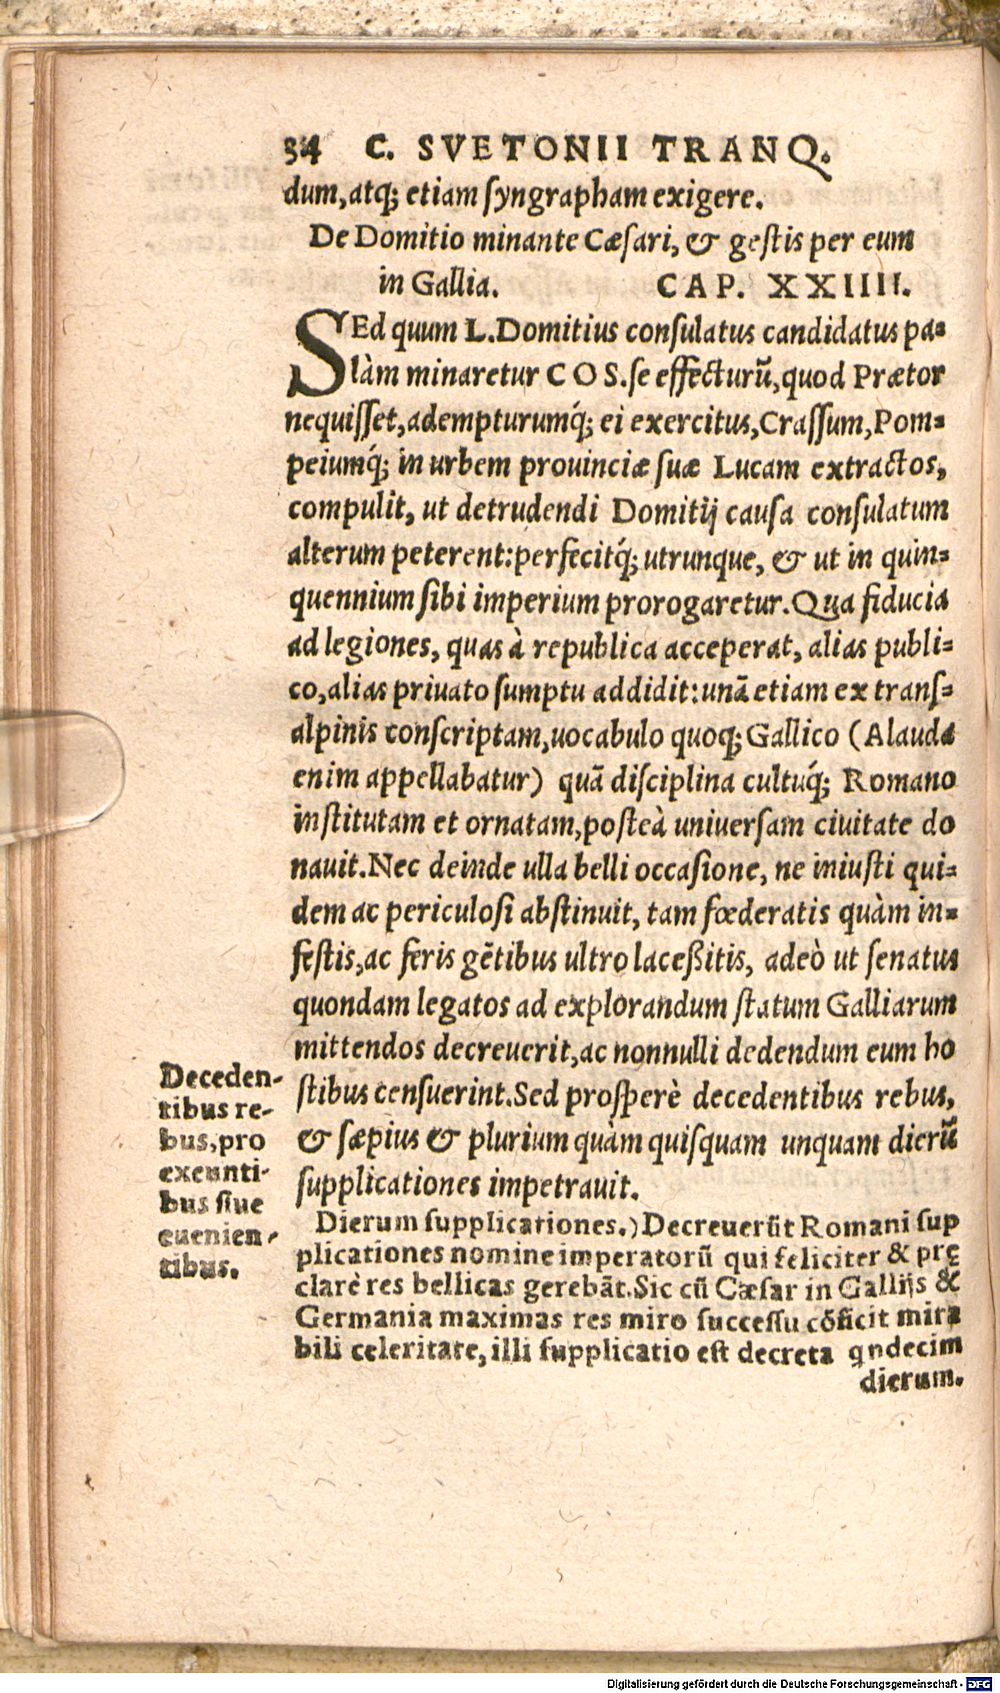 34 C. SVETONII TRANQ.
dum, atq; etiam syngrapham exigere.
De Domitio minante Cæsari, & gestis per eum
in Gallia. CAP. XXIIII.
SEd quum L. Domitius consulatus candidatus pa=
làm minaretur COS. se effecturū, quod Prætor
nequisset, adempturumq́; ei exercitus, Crassum, Pom=
peiumq́; in urbem prouinciæ suæ Lucam extractos,
compulit, ut detrudendi Domitij causa consulatum
alterum peterent: perfecitq́; utrunque, & ut in quin=
quennium sibi imperium prorogaretur. Qua fiducia
ad legiones, quas à republica acceperat, alias publi=
co, alias priuato sumptu addidit: unā etiam ex trans=
alpinis conscriptam, uocabulo quoq; Gallico (Alauda
enim appellabatur) quā disciplina cultuq́; Romano
institutam et ornatam, posteà uniuersam ciuitate do
nauit. Nec deinde ulla belli occasione, ne iniusti qui=
dem ac periculosi abstinuit, tam fœderatis quàm in=
festis, ac feris gētibus ultro laceßitis, adeò ut senatus
quondam legatos ad explorandum statum Galliarum
mittendos decreuerit, ac nonnulli dedendum eum ho
stibus censuerint. Sed prosperè decedentibus rebus,
& sæpius & plurium quàm quisquam unquam dierū
supplicationes impetrauit.
Deceden-
tibus re-
bus, pro
exeunti-
bus siue
euenien-
tibus.
Dierum supplicationes.) Decreuerūt Romani sup
plicationes nomine imperatorū qui feliciter & prę
clarè res bellicas gerebāt. Sic cū Cæsar in Gallijs &
Germania maximas res miro successu cōficit mira
bili celeritate, illi supplicatio est decreta qndecim
dierum.
Digitalisierung gefördert durch die Deutsche Forschungsgemeinschaft - DFG